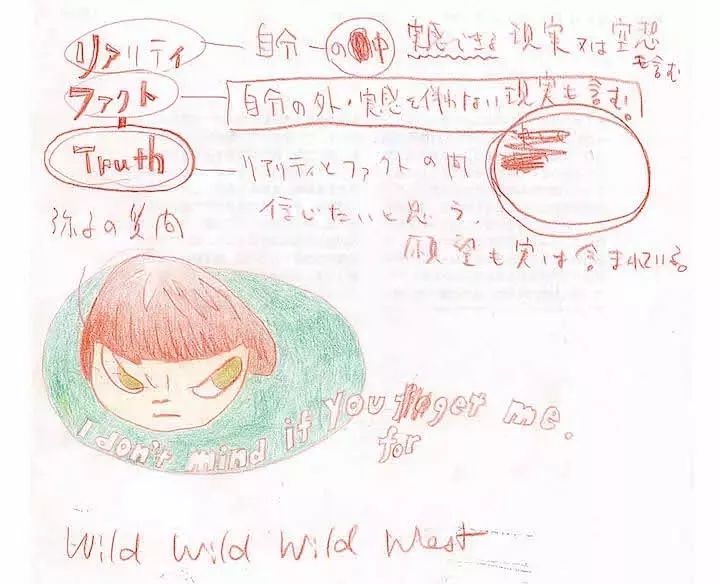 リアリティ — 自分の中 実感できる 現実 又は 空想
も含む
ファクト — 自分の外・実感を伴わない現実も含む。
Truth — リアリティとファクトの間
信じたいと思う、
弥子の質問
願望も実は含まれている。
I don't mind if you ger me.
for
Wild Wild Wild West